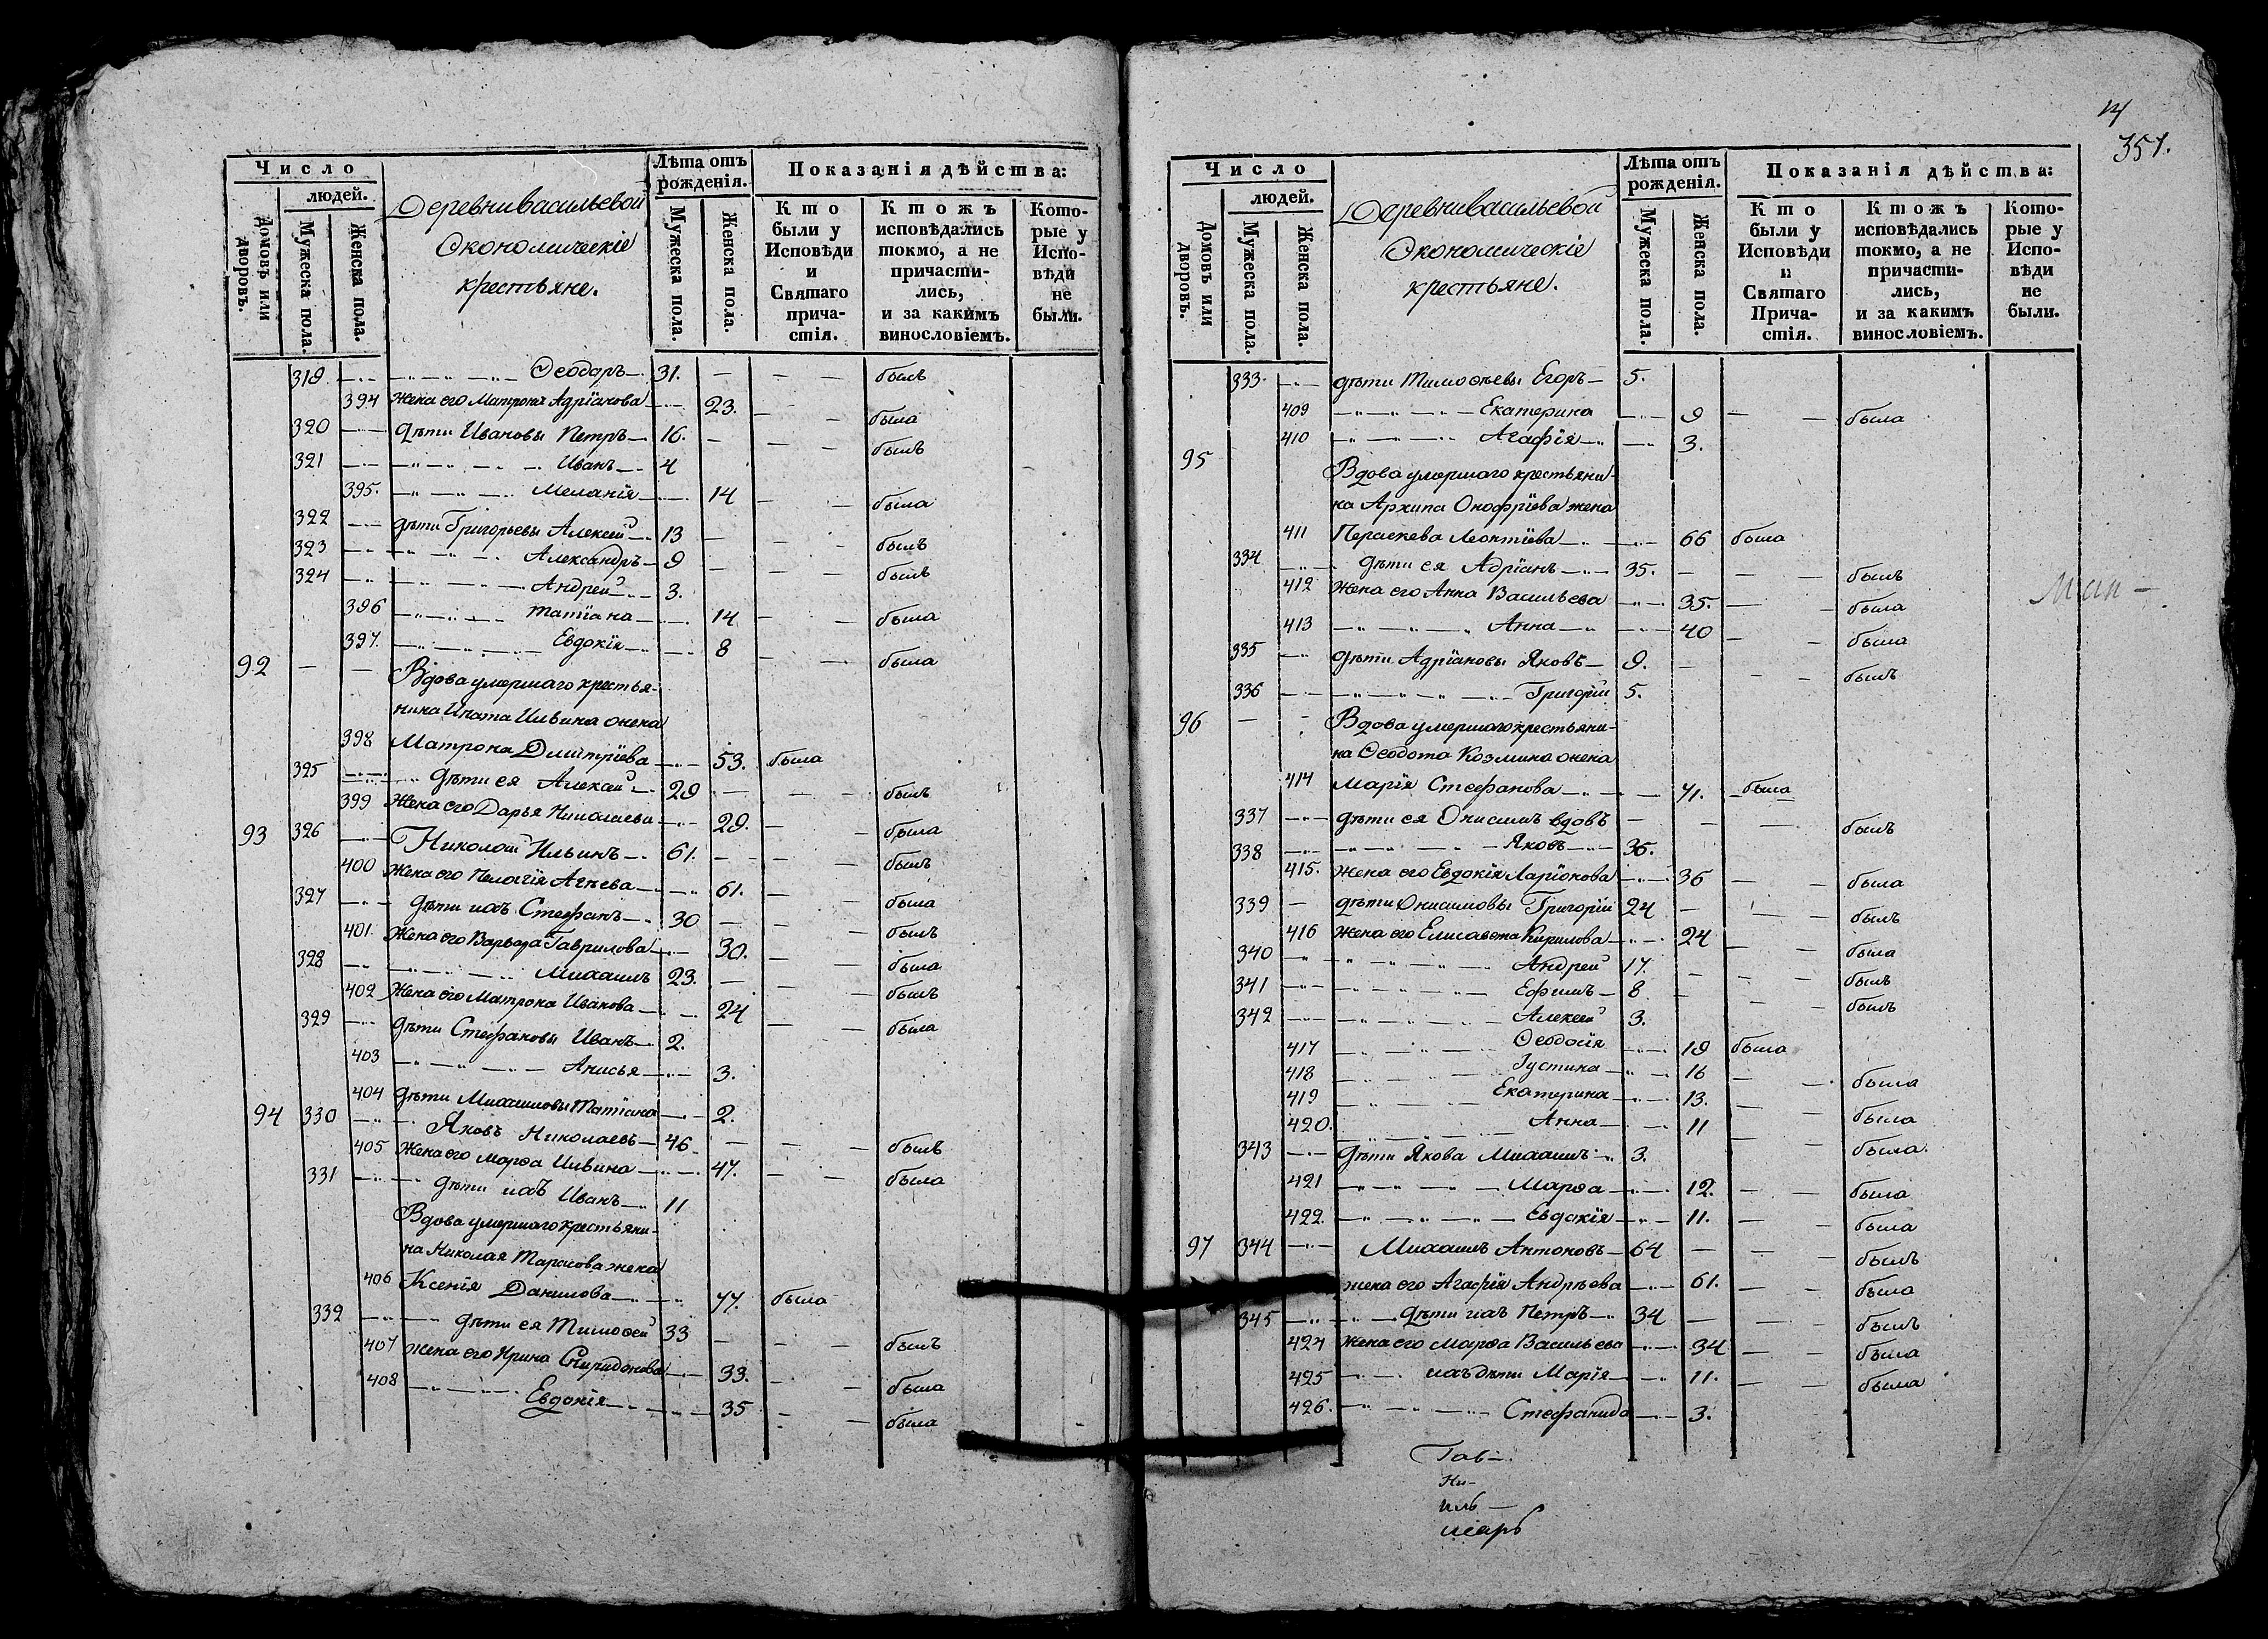 Число
людей.
Домовъ или дворовъ.
Мужеска пола.
Женска пола.
Деревни васильевой
Экономическіе
крестьяне.
Лѣта отъ рожденія.
Мужеска пола.
Женска пола.
Показанія дѣйства:
Кто были у Исповѣди и Святаго прича-стія.
Ктожъ исповѣдались токмо, а не причасти-лись, и за какимъ винословіемъ.
Кото-рые у Испо-вѣди не были.
319 Ѳеодоръ 31. былъ
394 жена его Матрона Адріанова 23. была
320 дѣти Ивановы Петръ 16. былъ
321 Иванъ 4
395. Меланія 14 была
322 дѣти Григорьевы Алексей 13 былъ
323 Александръ 9 былъ
324 Андрей 3.
396 татіана 14 была
397. Евдокія 8 была
92 Вдова умершаго крестья-
нина Ипата Ильина жена
398 Матрона Дмитріева 53. была
325 дѣти ея Алексей 29 былъ
399 жена его Дарья Николаева 29. была
93 326 Николай Ильинъ 61. былъ
400 жена его Пелагія Агѣева 61. была
327 дѣти ихъ Стефанъ 30 былъ
401. жена его Варвара Гаврилова 30. была
328 Михаилъ 23. былъ
402 жена его Матрона Иванова 24 была
329 дѣти Стефановы Иванъ 2.
403 Анисья 3.
404 дѣти Михаиловы Татіана 2.
94 330 Яковъ Николаевъ 46 былъ
405 жена его Марѳа Ильина 47. была
331 дѣти ихъ Иванъ 11
Вдова умершаго крестьяни-
на Николая Тарасова жена
406 Ксенія Данилова 77. была
332 дѣти ея Тимоѳей 33 былъ
407 жена его Ирина Спиридонова 33. была
408 Евдокія 35 была
14
351.
Число
людей.
Домовъ или дворовъ.
Мужеска пола.
Женска пола.
Деревни васильевой
Экономическіе
крестьяне.
Лѣта отъ рожденія.
Мужеска пола.
Женска пола.
Показанія дѣйства:
Кто были у Исповѣди и Святаго Прича-стія.
Ктожъ исповѣдались токмо, а не причасти-лись, и за какимъ винословіемъ.
Кото-рые у Испо-вѣди не были.
333. дѣти Тимоѳѣевы Егоръ 5.
409 Екатерина 9 была
410 Агафія 3.
95 Вдова умершаго крестьяни-
на Архипа Онофріева жена
411 Параскева Леонтіева 66 была
334 дѣти ея Адріанъ 35. былъ
412 жена его Анна Васильева 35. была
413 Анна 40 была
335 дѣти Адріановы Яковъ 9. былъ
336 Григорій 5.
96 Вдова умершаго крестьяни-
на Ѳеодота Козмина жена
414 Марія Стефанова 71. была
337 дѣти ея Онисимъ вдовъ былъ
338 Яковъ 36.
415. жена его Евдокія Ларіонова 36 была
339 дѣти Онисимовы Григорій 24 былъ
416 жена его Елисавета Кирилова 24 была
340 Андрей 17. былъ
341 Ефимъ 8 былъ
342 Алексей 3.
417 Ѳеодосія 19 была
418 Іустина 16 была
419 Екатерина 13. была
420. Анна 11 была.
343 дѣти Якова Михаилъ 3.
421 Марѳа 12. была
422. Евдокія 11. была
97 344 Михаилъ Антоновъ 64 былъ
жена его Агафія Андрѣева 61. была
345 дѣти ихъ Петръ 34 былъ
424 жена его Марѳа Васильева 34 была
425 ихъ дѣти Марія 11. была
426. Стефанида 3.
Гав-
Ни-
иль-